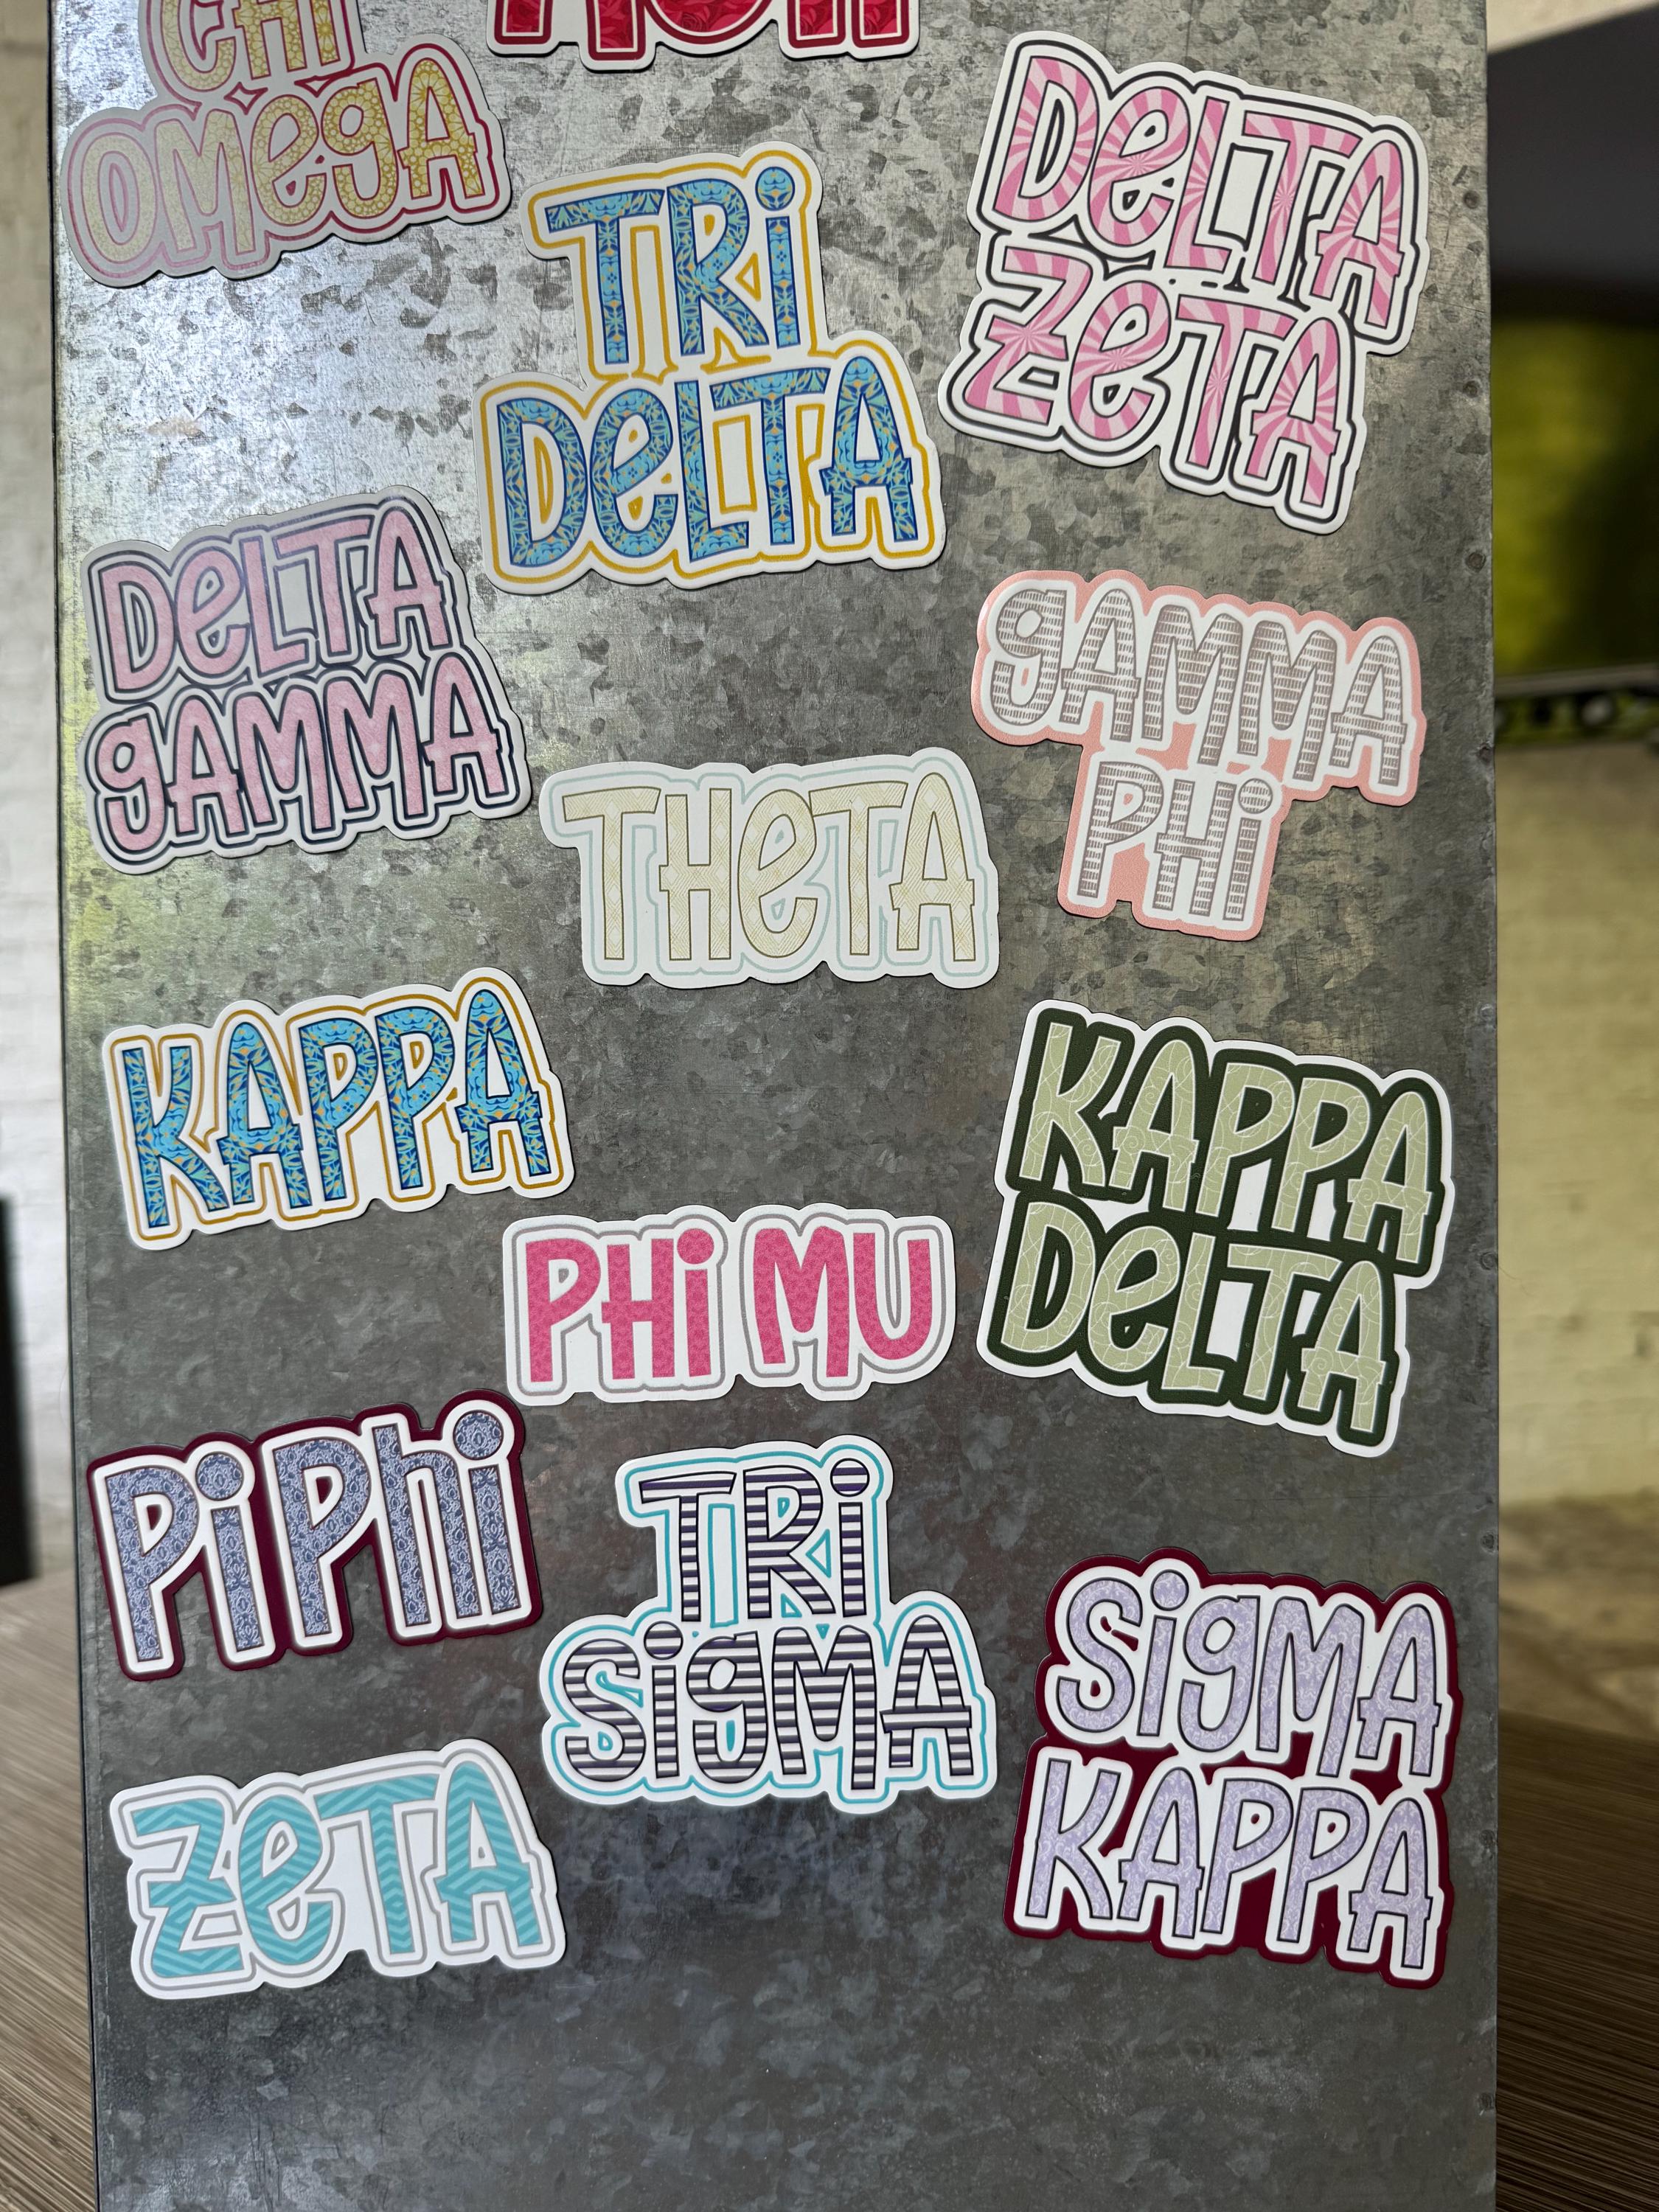 CHI
OMegA
TRi
DeLTA
DeLTA
ZeTA
DeLTA
gAMMA
gAMMA
PHi
THeTA
KAPPA
KAPPA
DeLTA
PHi MU
Pi Phi
TRi
SigMA
SigMA
KAPPA
ZeTA